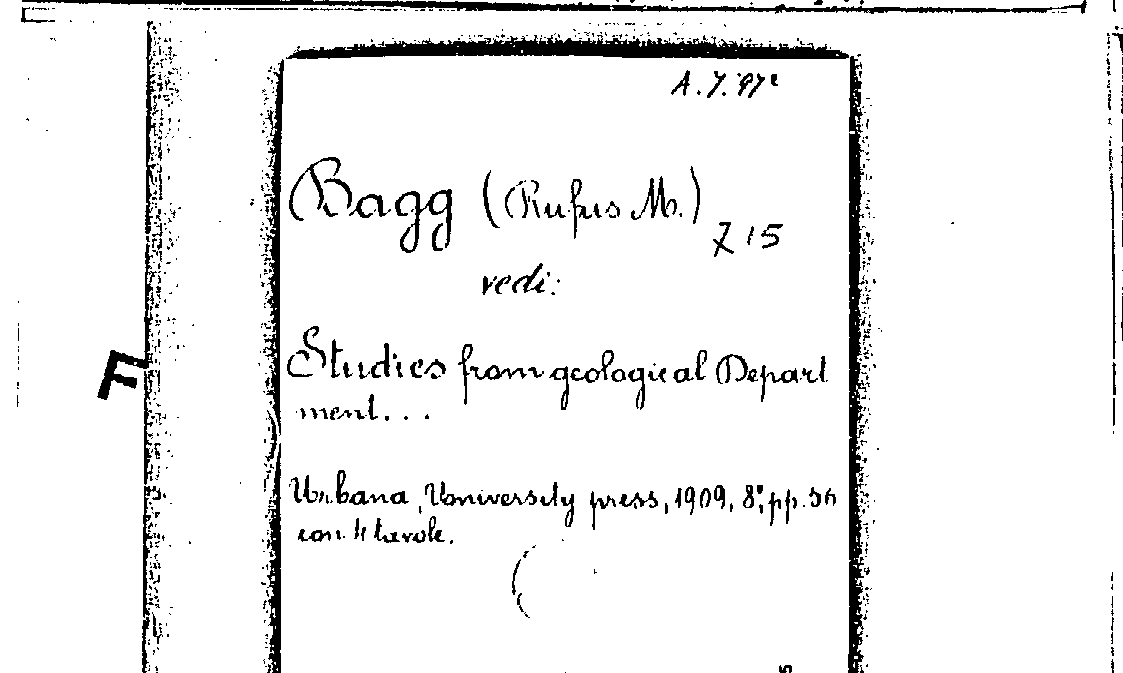 A.7.97
Bagg (Rufus M.)
Z 15
vedi:
Studies from geological Depart
ment...
Urbana, University press, 1909, 8°, pp. 56
con 4 tavole.
F